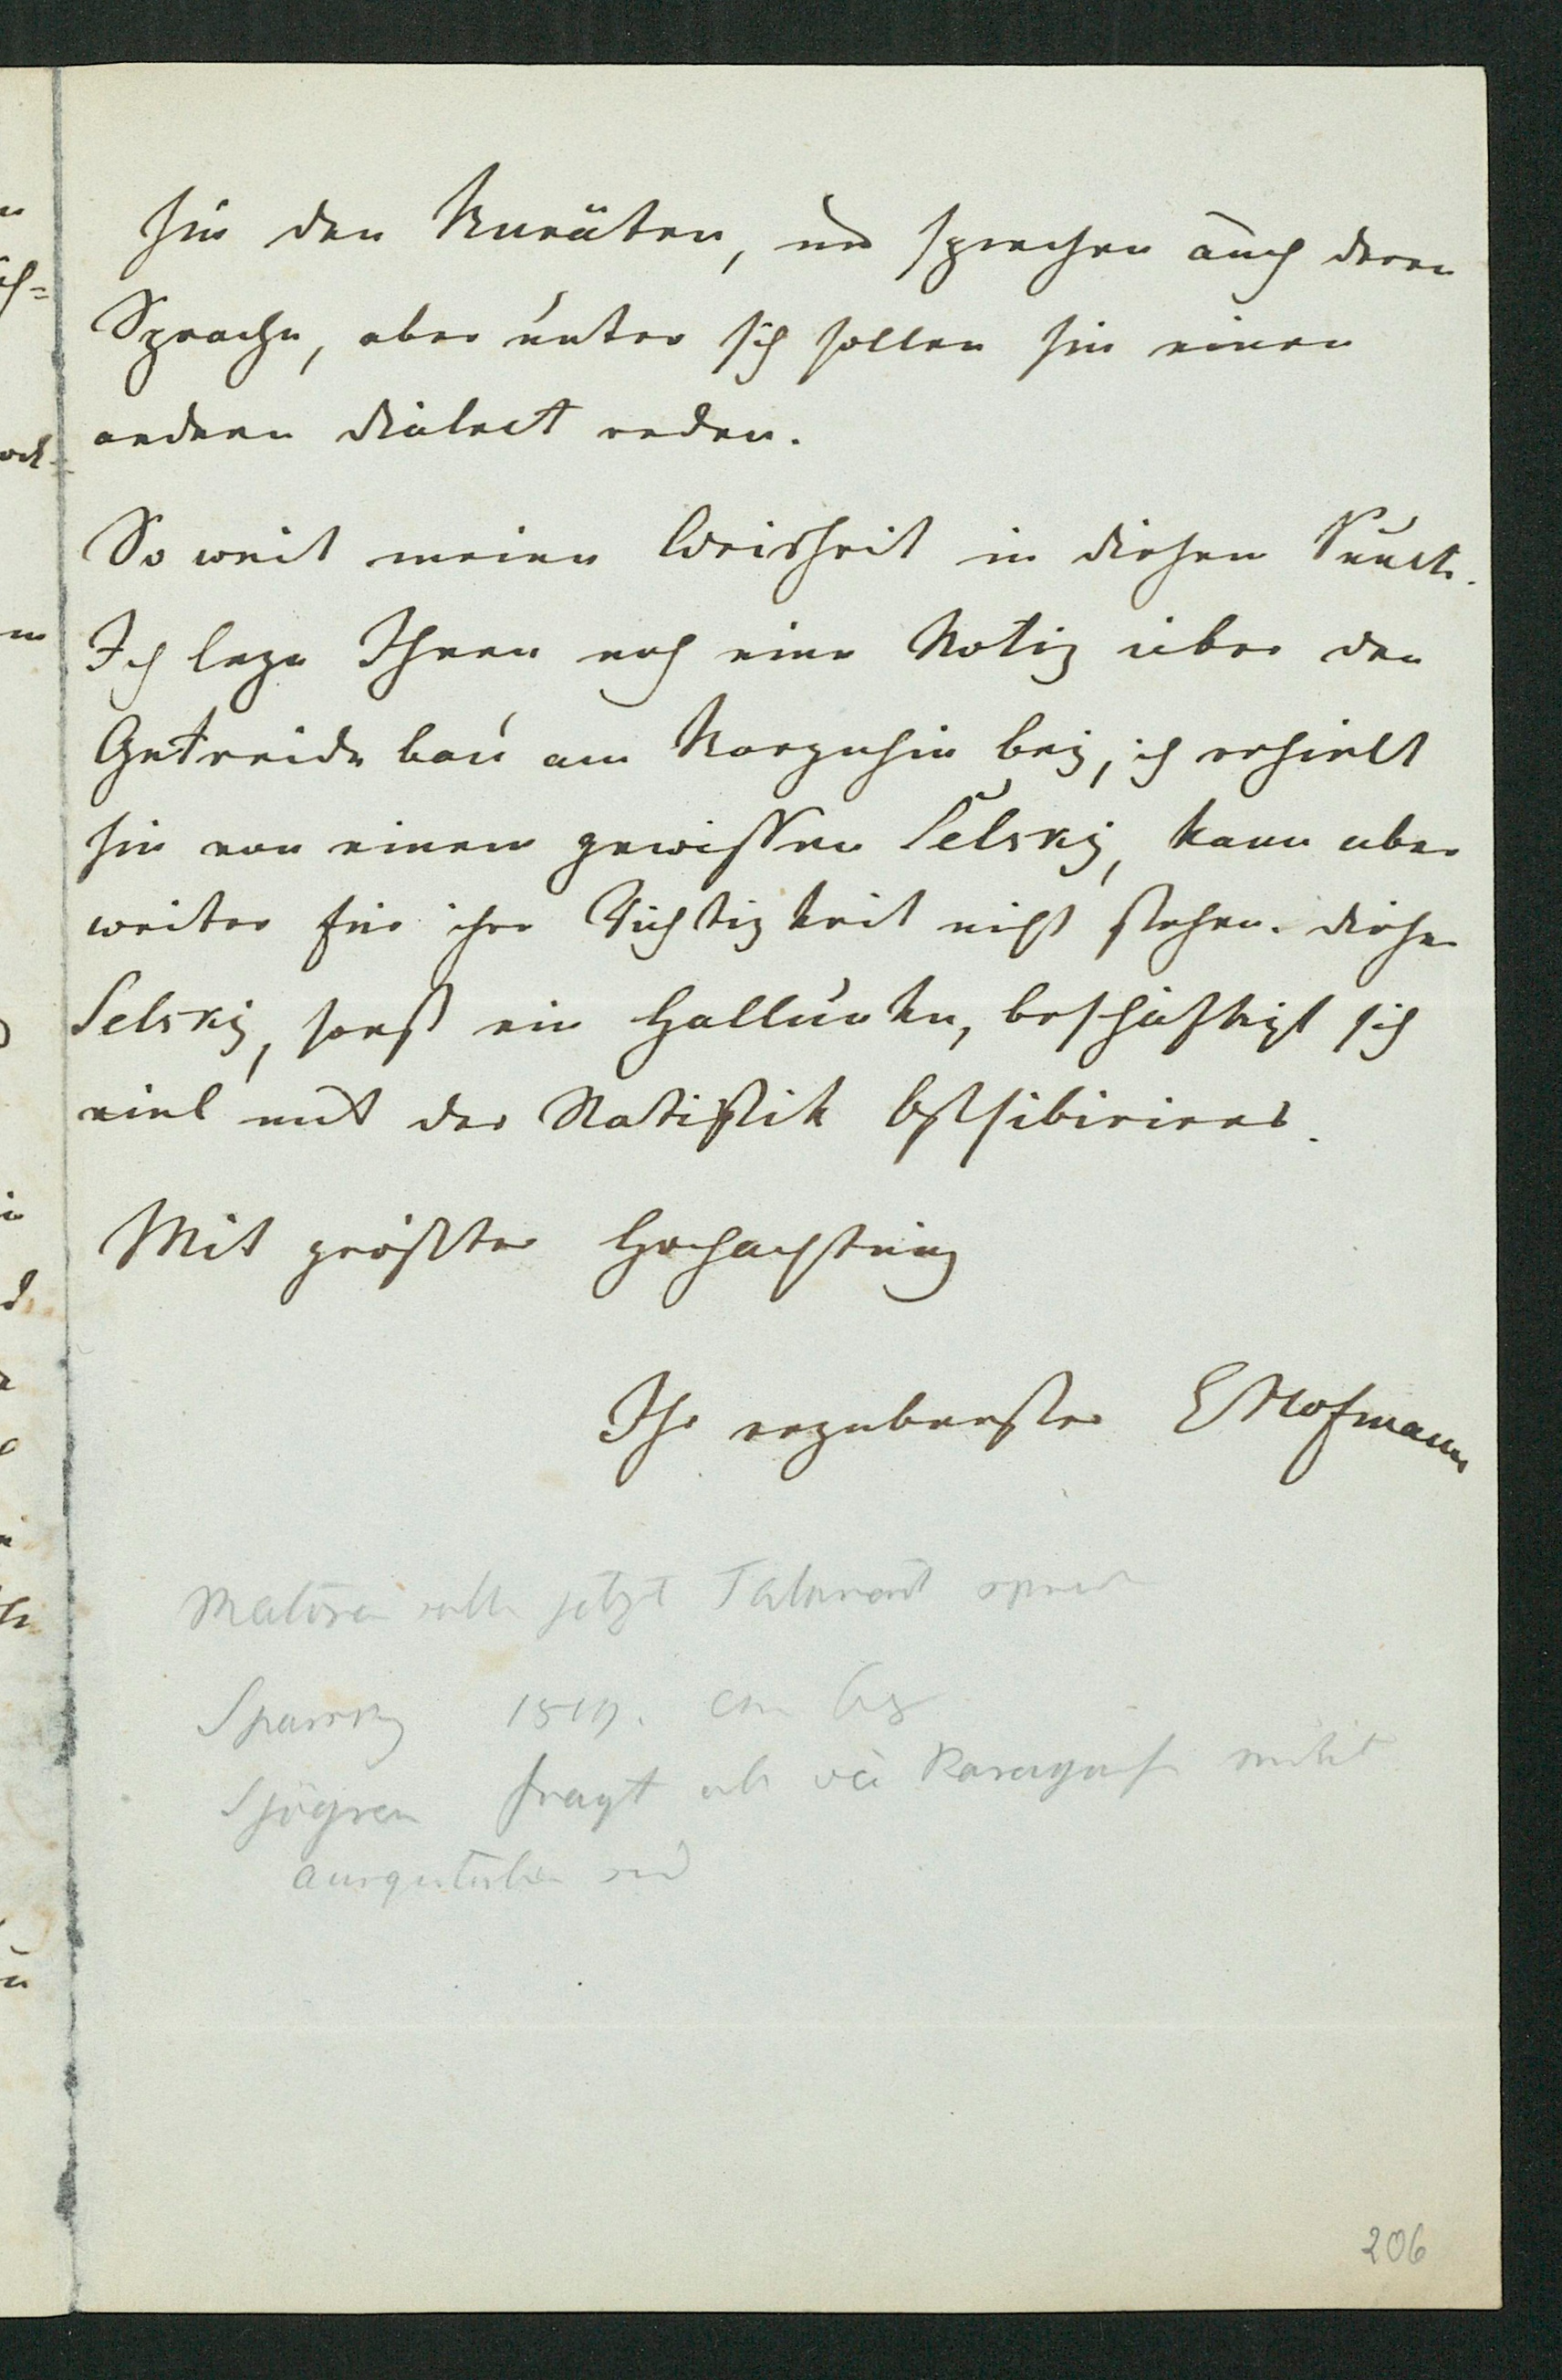 sie den Buräten, und sprechen auch deren
Sprache, aber unter sich sollen sie einen
andern Dialect reden.
So weit meine Weisheit in diesem Punct.
Ich lege Ihnen noch eine Notiz über den
Getreidebau am bey, ich erhielt
sie von einem gewissen Selsky, kann aber
weiter für ihre Richtigkeit nicht stehen. Dieser
Selsky, sonst ein Hallunke, beschäftigt sich
viel mit der Statistik Ostsibiriens.
Mit größter Hochachtung
Ihr ergebenster E Hofmann
jetzt
Spassky
Sjögren fragt ob die Karagass nicht
ausgestorben sind
206